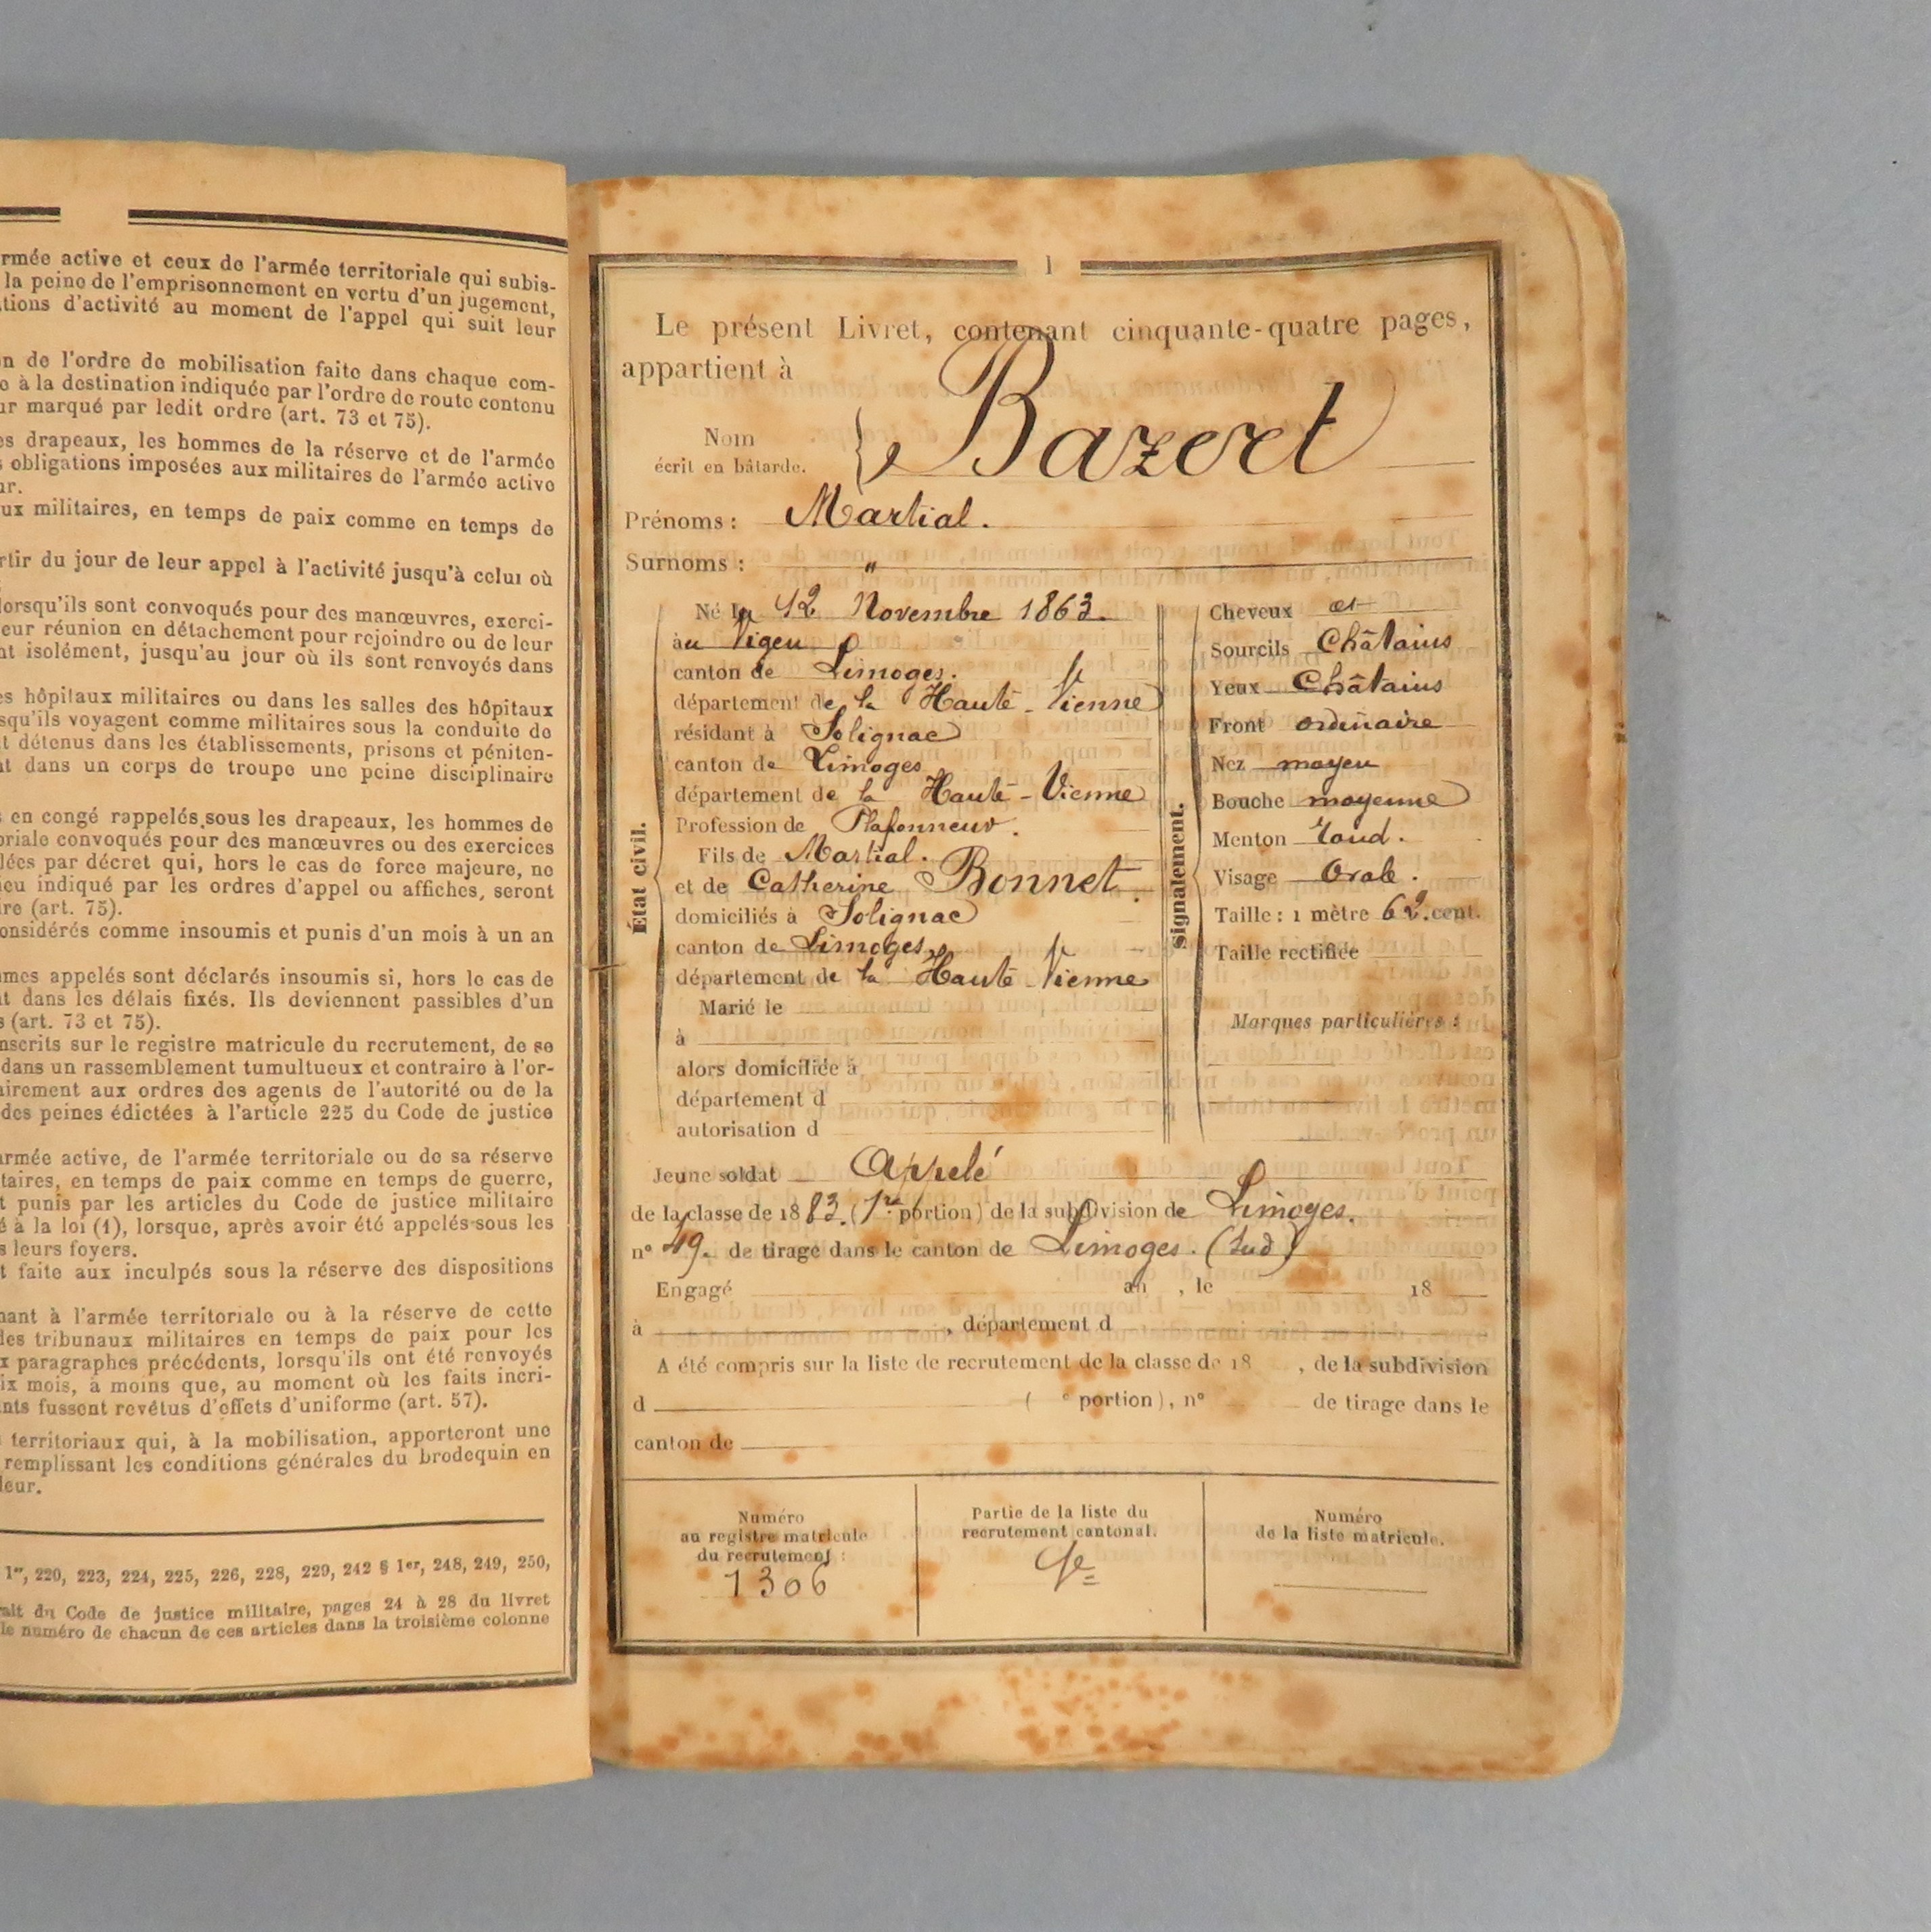 rmée active et ceux de l'armée territoriale qui subis-
la peine de l'emprisonnement en vertu d'un jugement,
tions d'activité au moment de l'appel qui suit leur
n de l'ordre de mobilisation faite dans chaque com-
e à la destination indiquée par l'ordre de route contenu
ur marqué par ledit ordre (art. 73 et 75).
es drapeaux, les hommes de la réserve et de l'armée
s obligations imposées aux militaires de l'armée active
ur.
ux militaires, en temps de paix comme en temps de
rtir du jour de leur appel à l'activité jusqu'à celui où
lorsqu'ils sont convoqués pour des manœuvres, exerci-
eur réunion en détachement pour rejoindre ou de leur
nt isolément, jusqu'au jour où ils sont renvoyés dans
es hôpitaux militaires ou dans les salles des hôpitaux
squ'ils voyagent comme militaires sous la conduite de
t détenus dans les établissements, prisons et péniten-
nt dans un corps de troupe une peine disciplinaire
s en congé rappelés sous les drapeaux, les hommes de
oriale convoqués pour des manœuvres ou des exercices
lées par décret qui, hors le cas de force majeure, ne
ieu indiqué par les ordres d'appel ou affiches, seront
ire (art. 75).
onsidérés comme insoumis et punis d'un mois à un an
mmes appelés sont déclarés insoumis si, hors le cas de
nt dans les délais fixés. Ils deviennent passibles d'un
s (art. 73 et 75).
nscrits sur le registre matricule du recrutement, de se
dans un rassemblement tumultueux et contraire à l'or-
airement aux ordres des agents de l'autorité ou de la
des peines édictées à l'article 225 du Code de justice
armée active, de l'armée territoriale ou de sa réserve
taires, en temps de paix comme en temps de guerre,
t punis par les articles du Code de justice militaire
é à la loi (1), lorsque, après avoir été appelés sous les
s leurs foyers.
t faite aux inculpés sous la réserve des dispositions
nant à l'armée territoriale ou à la réserve de cette
des tribunaux militaires en temps de paix pour les
x paragraphes précédents, lorsqu'ils ont été renvoyés
ix mois, à moins que, au moment où les faits incri-
ants fussent revêtus d'effets d'uniforme (art. 57).
territoriaux qui, à la mobilisation, apporteront une
remplissant les conditions générales du brodequin en
leur.
1er, 220, 223, 224, 225, 226, 228, 229, 242 § 1er, 248, 249, 250,
ait du Code de justice militaire, pages 24 à 28 du livret
le numéro de chacun de ces articles dans la troisième colonne
1
Le présent Livret, contenant cinquante-quatre pages,
appartient à
Nom
écrit en bâtarde.
Bazert
Prénoms : Martial.
Surnoms : "
État civil.
Né le 12 Novembre 1863.
au Vigen
canton de Limoges.
département de la Haute-Vienne
résidant à Solignac
canton de Limoges
département de la Haute-Vienne
Profession de Plafonneur.
Fils de Martial.
et de Catherine Bonnet.
domiciliés à Solignac
canton de Limoges
département de la Haute-Vienne
Marié le
à
alors domiciliée à
département d
autorisation d
Signalement.
Cheveux et
Sourcils Châtains
Yeux Châtains
Front ordinaire
Nez moyen
Bouche moyenne
Menton rond.
Visage Ovale.
Taille : 1 mètre 62. cent.
Taille rectifiée
Marques particulières :
Jeune soldat Appelé
de la classe de 1883. (1re portion) de la subdivision de Limoges.
n° 49. de tirage dans le canton de Limoges. (Sud)
Engagé an , le 18
à , département d
A été compris sur la liste de recrutement de la classe de 18 , de la subdivision
d ( e portion), n° de tirage dans le
canton de
Numéro
au registre matricule
du recrutement :
1306
Partie de la liste du
recrutement cantonal.
Numéro
de la liste matricule.